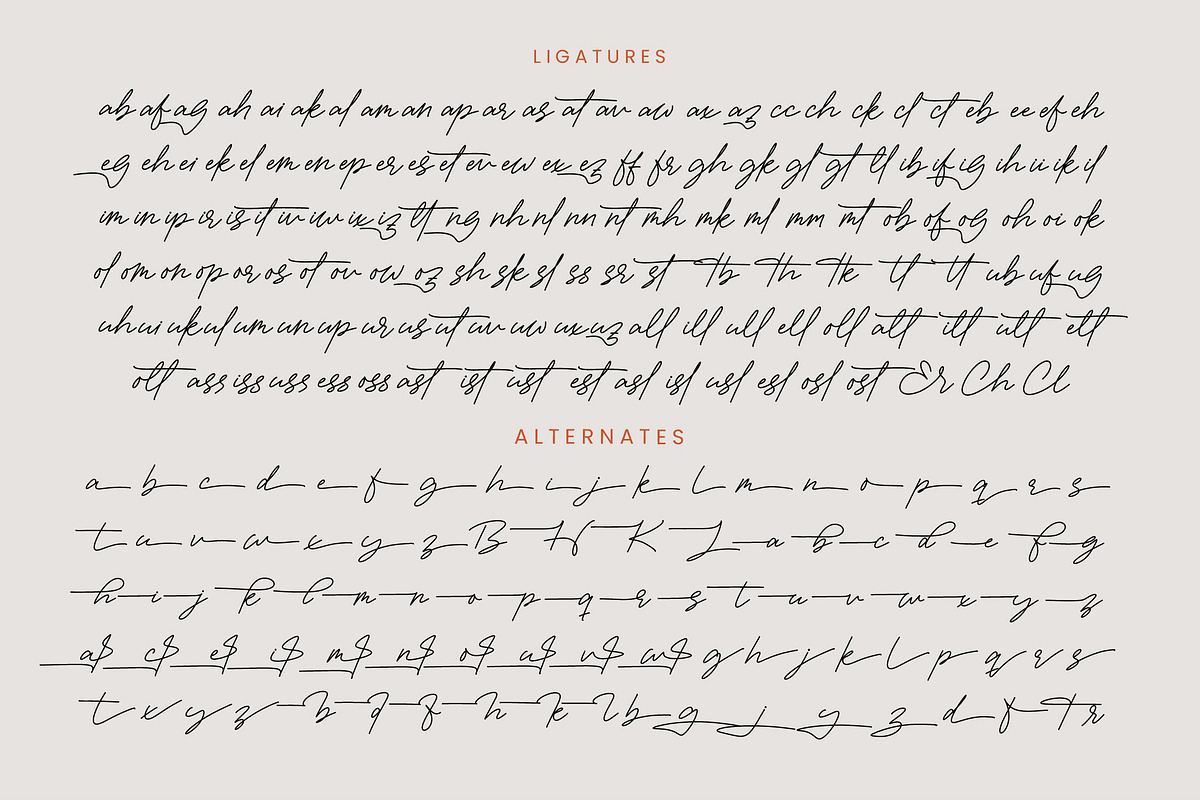 LIGATURES
ab af ag ah ai ak al am an ap ar as at av aw ax az cc ch ck cl ct eb ee ef eh
eg eh ei ek el em en ep er es et ev ew ex ez ff fr gh gk gl gt ll ib if ig ih ii ik il
im in ip ir is it iv iw ix iz lt ng nh nl nn nt mh mk ml mm mt ob of og oh oi ok
ol om on op or os ot ov ow oz sh sk sl ss sr st Th Th Tk tl tt ub uf ug
uh ui uk ul um un up ur us ut uv uw ux uz all ill ull ell oll att itt utt ett
ott ass iss uss ess oss ast ist ust est asl isl usl esl osl ost Er Ch Cl
ALTERNATES
a b c d e f g h i j k l m n o p q r s
t u v w x y z B H K L a b c d e f g
h i j k l m n o p q r s t u v w x y z
a c e i m n o u v w g h j k l p q r s
t x y z b d f h k l b g j y z d f T r